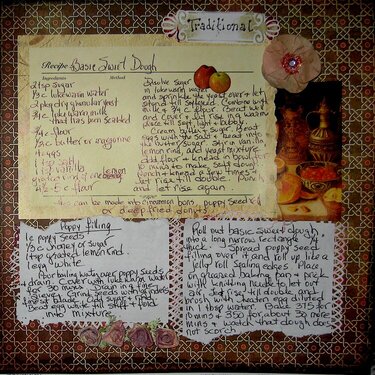 Traditional
Recipe: Basic Sweet Dough
Ingredients Method
2 tsp sugar
1/2 c lukewarm water
2 pkg dry granular yeast
3/4 c lukewarm milk
that has been scalded
4 c flour
1/2 c butter or margarine
4 eggs
1 tsp salt
1 tsp vanilla
rind of one lemon
4 1/2 c flour
Dissolve sugar
in lukewarm water
and sprinkle the yeast over & let
stand till softened. Combine with
milk & 3/4 c flour. Beat well
and cover & let rise in warm
place till soft, light & bubbly.
Cream butter & sugar. Beat
eggs with the salt & bead into
the butter/sugar. Stir in vanilla
lemon rind, and yeast mixture
add flour & knead in bowl for
minutes to make soft dough
knead a few times &
till double. Punch
and let rise again.
this can be made into cinnamon buns, poppy seed &
or deep fried donuts
Poppy filling
1 c poppy seeds
1/2 c honey or sugar
1 tsp grated lemon rind
1 egg white
Pour boiling water over poppy seeds
& drain. Cover with lukewarm water
for 30 mins. Drain in fine
sieve & spread seeds. Grind using
finest blade. Add sugar & rind
Beat egg white till stiff & fold
into mixture
Roll out basic sweet dough
into a long narrow rectangle 1/4
thick. Spread poppy seeds
filling over it and roll up like a
jelly roll sealing edges. Place
on greased baking pan & prick
with knitting needle to let out
air. Let rise till double and
brush with beaten egg diluted
in 1 tbsp water. Bake 375 for
10 mins & 350 for about 30 more
mins & watch that dough does
not scorch